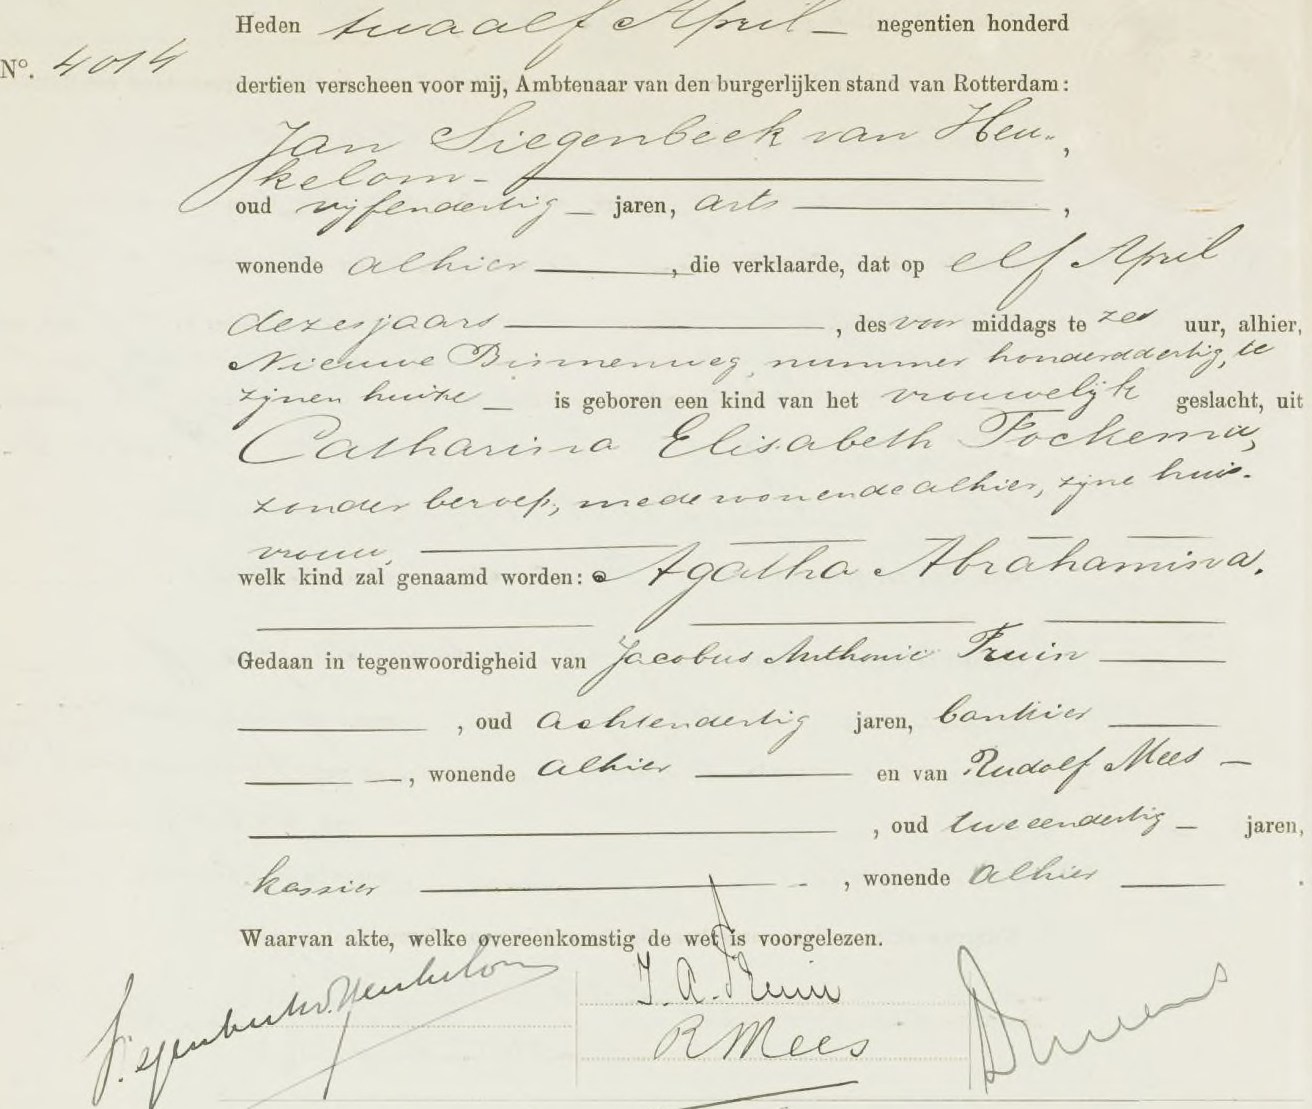 Heden twaalf April negentien honderd
N°. 4014
dertien verscheen voor mij, Ambtenaar van den burgerlijken stand van Rotterdam:
Jan Siegenbeek van Heu-
kelom ,
oud vijfendertig jaren, arts ,
wonende alhier , die verklaarde, dat op elf April
dezes jaars , des voor middags te zes uur, alhier,
Nieuwe Binnenweg, nummer honderddertig, te
zijnen huize is geboren een kind van het vrouwelijk geslacht, uit
Catharina Elisabeth Fockema,
zonder beroep, mede wonende alhier, zijne huis-
vrouw,
welk kind zal genaamd worden: Agatha Abrahamina.
Gedaan in tegenwoordigheid van Jacobus Anthonie Fruin
, oud achtendertig jaren, bankier
, wonende alhier en van Rudolf Mees
, oud tweeendertig jaren,
kassier , wonende alhier .
Waarvan akte, welke overeenkomstig de wet is voorgelezen.
Siegenbeek v. Heukelom
J. A. Fruin
R Mees